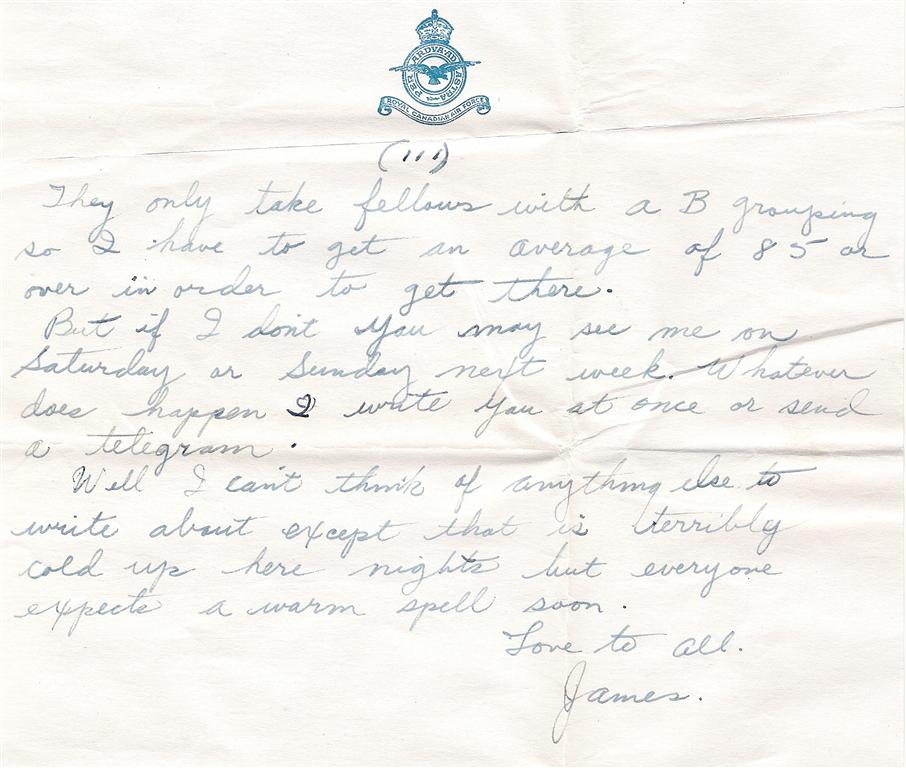 PER ARDVA AD ASTRA
ROYAL CANADIAN AIR FORCE
(111)
They only take fellows with a B grouping
so I have to get an average of 85 or
over in order to get there.
But if I don't you may see me on
Saturday or Sunday next week. Whatever
does happen I write you at once or send
a telegram.
Well I can't think of anything else to
write about except that is terribly
cold up here nights but everyone
expects a warm spell soon.
Love to all.
James.